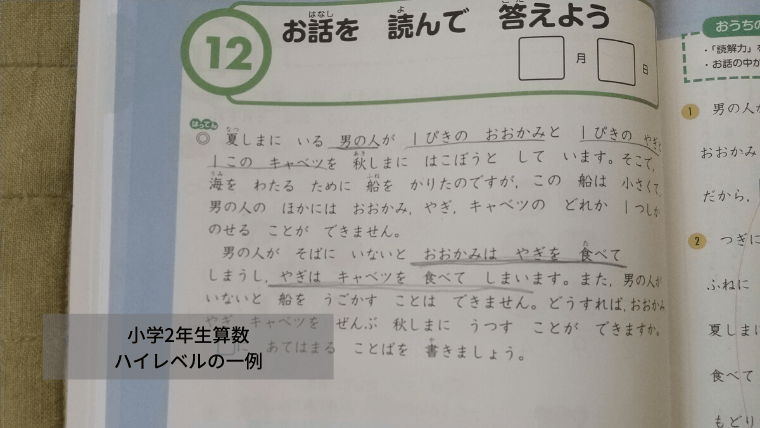 12
お話を 読んで 答えよう
月 日
はってん
◎ 夏しまに いる 男の人が 1ぴきの おおかみと 1ぴきの やぎと
1この キャベツを 秋しまに はこぼうと して います。そこで,
海を わたる ために 船を かりたのですが, この 船は 小さくて
男の人の ほかには おおかみ, やぎ, キャベツの どれか 1つしか
のせる ことが できません。
男の人が そばに いないと おおかみは やぎを 食べて
しまうし, やぎは キャベツを 食べて しまいます。また, 男の人が
いないと 船を うごかす ことは できません。どうすれば, おおかみ
やぎ キャベツを ぜんぶ 秋しまに うつす ことが できますか。
□に あてはまる ことばを 書きましょう。
小学2年生算数
ハイレベルの一例
おうちの
・「読解力」
・お話の中か
1 男の人が
おおかみ
だから,
2 つぎに
ふねに
夏しま
食べて
もどり